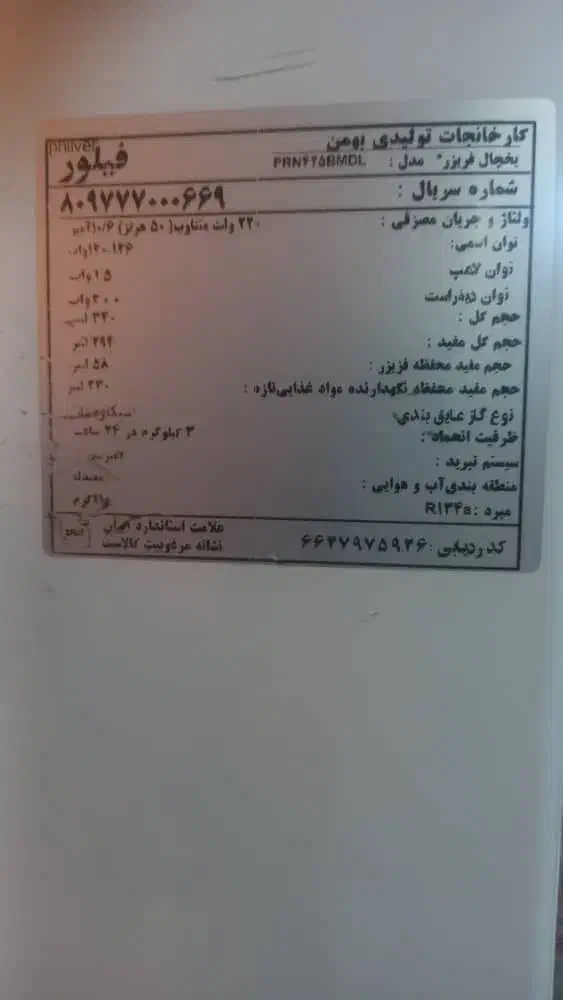 کارخانجات تولیدی بهمن
philver
فیلور
یخچال فریزر* مدل : PRN۴۲۵BMDL
شماره سریال : ۸۰۹۷۷۷۰۰۰۶۶۹
ولتاژ و جریان مصرفی : ۲۲۰ وات متناوب( ۵۰ هرتز) ۰/۶
توان اسمی: ۱۲۰-۱۳۶وات
توان لامپ ۱۵وات
توان دیفراست ۲۰۰وات
حجم کل : ۳۴۰
حجم کل مفید : ۲۹۴ لیتر
حجم مفید محفظه فریزر : ۵۸ لیتر
حجم مفید محفظه نگهدارنده مواد غذایی تازه : ۲۳۰ لیتر
نوع گاز عایق بندی:
ظرفیت انجماد*: ۳ کیلوگرم در ۲۴ ساعت
سیستم تبرید :
منطقه بندی آب و هوایی : معتدله
مبرد : R۱۳۴a گرم
علامت استاندارد ایران
نشانه مرغوبیت کالاست
کد ردیابی : ۶۶۲۷۹۷۵۹۲۶